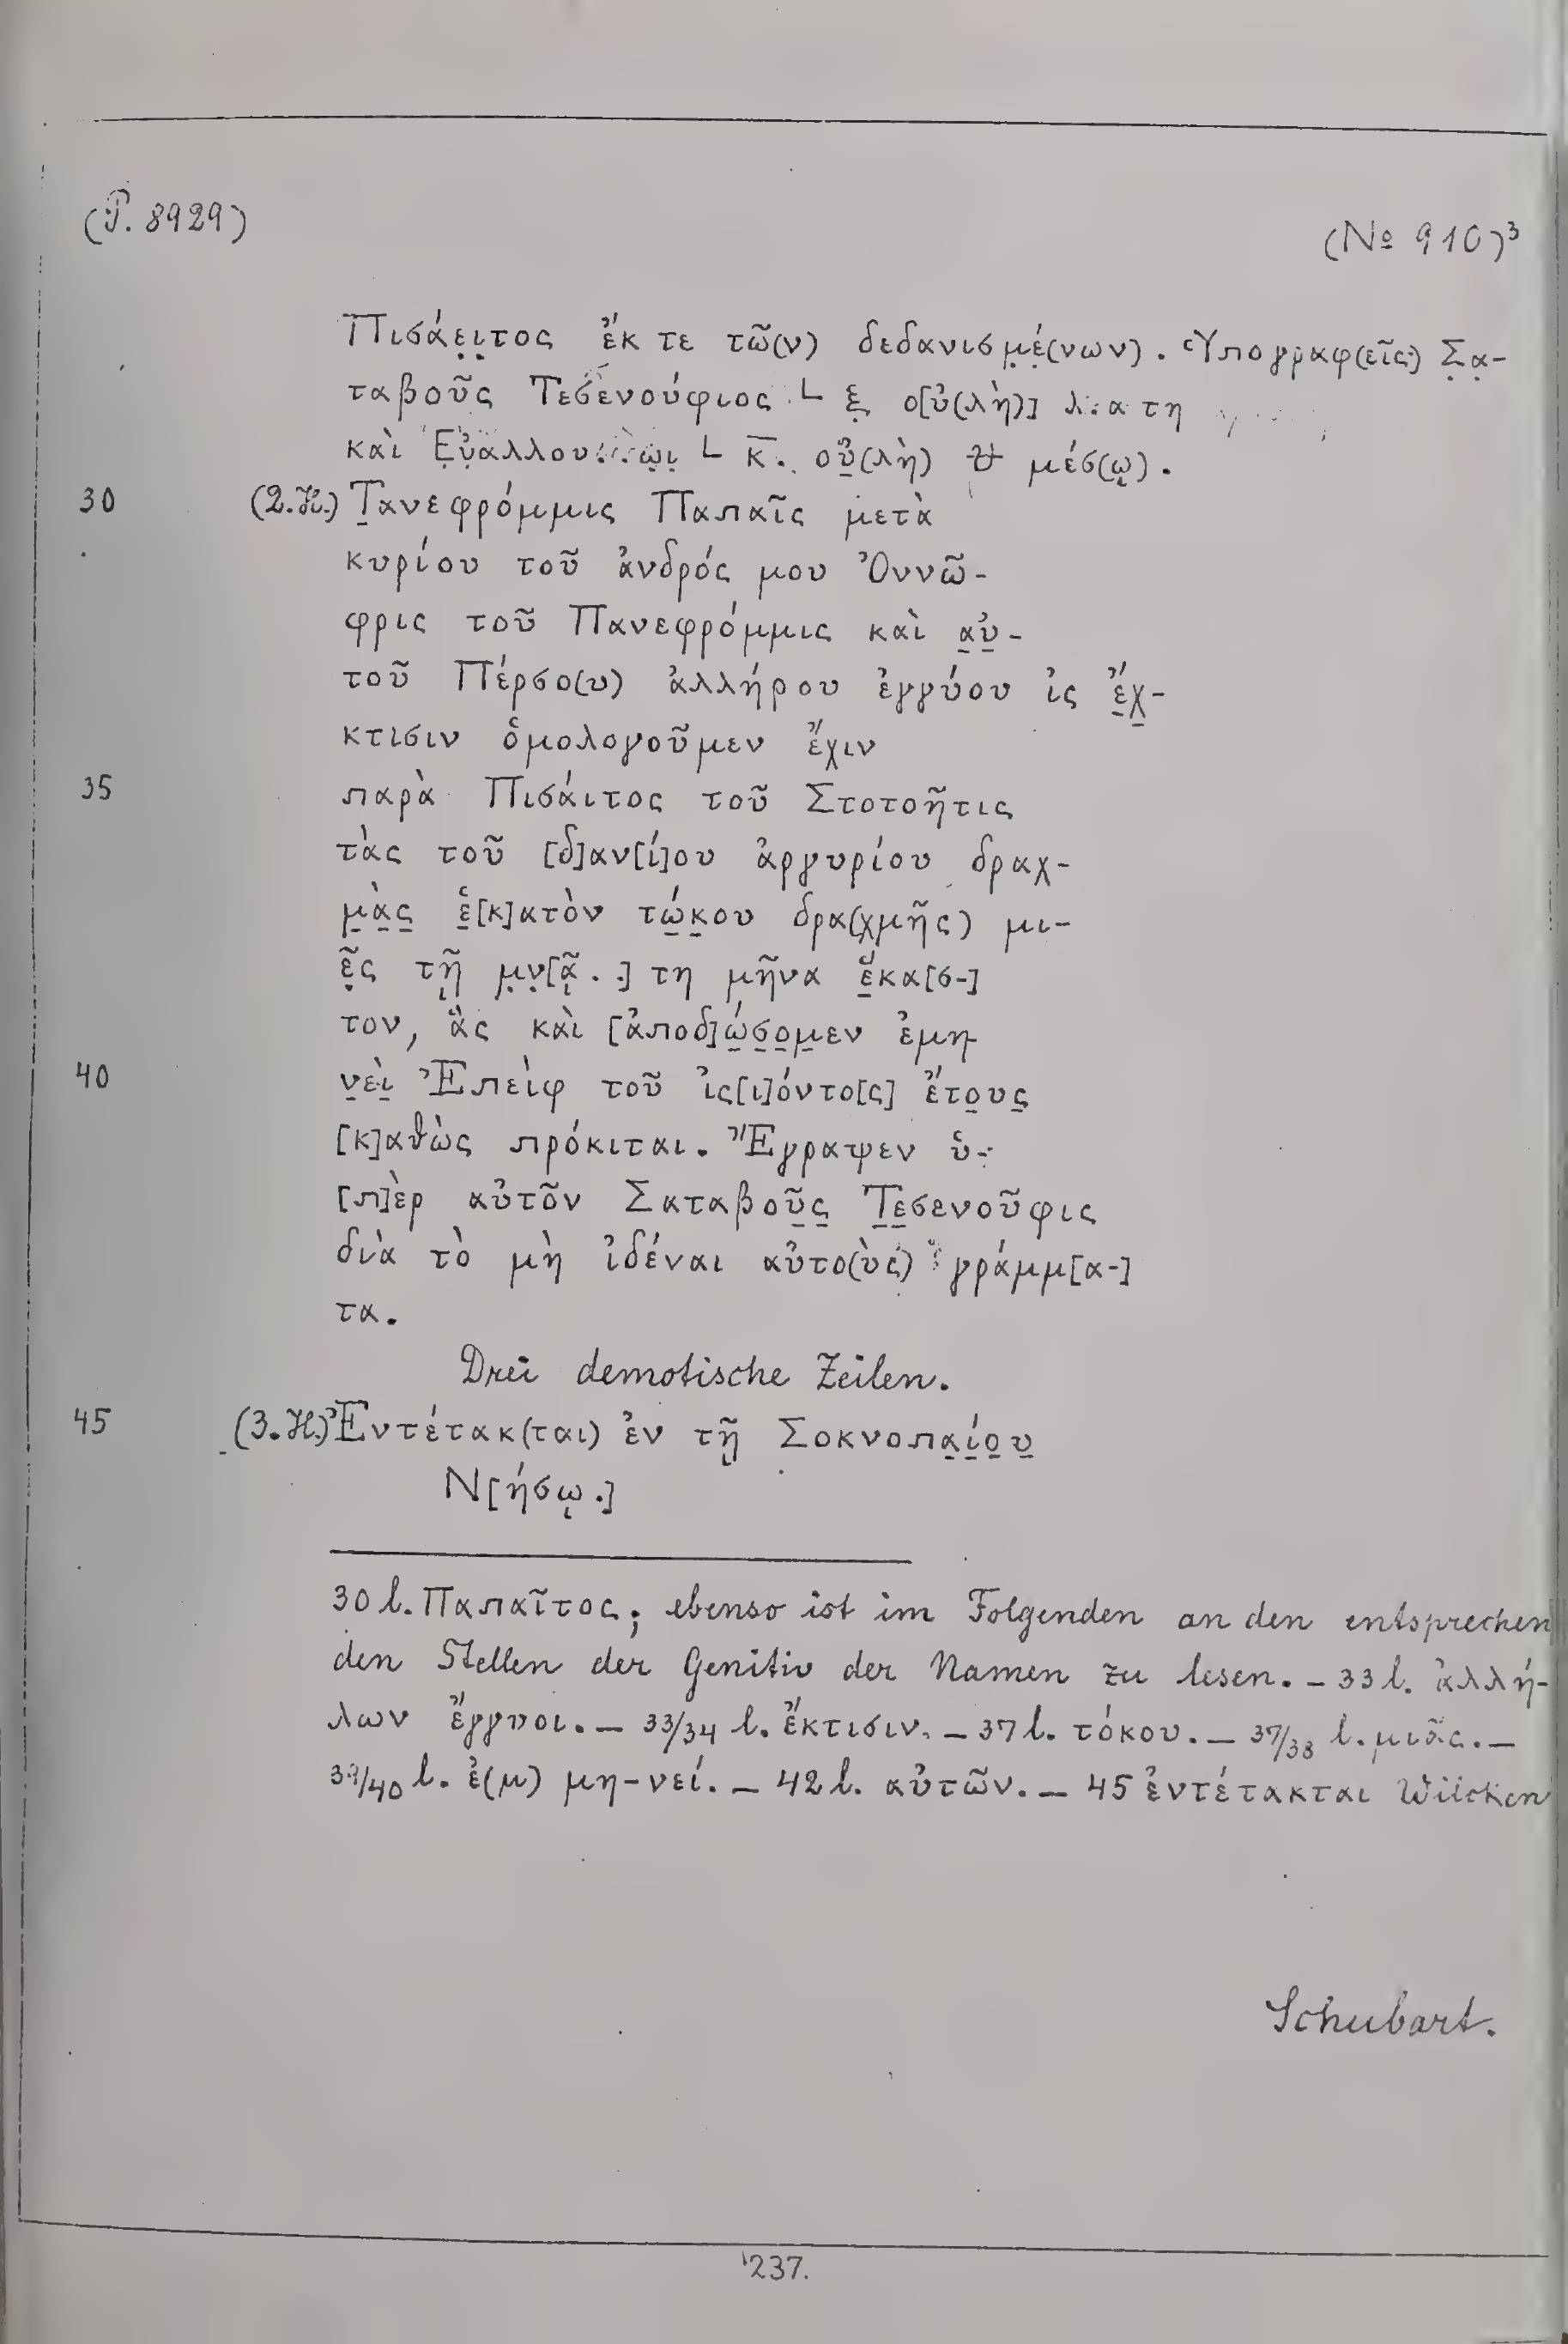 (P. 8929)
(№ 910)³
Πισάẹι̣τος ἔκ τε τῶ(ν) δεδανισμ̣έ̣(νων). Ὑπογραφ(εῖς) Σ̣α̣-
ταβοῦς Τεσενούφιος ∟ ξ̣ ο[ὐ(λὴ)]
καὶ ∟ κ̅. οὐ̣(λὴ) μέσ(ῳ).
30 (2.H.) Τ̣ανεφρόμμις Παπαῖς μετὰ
κυρίου τοῦ ἀνδρός μου Ὀννῶ-
φρις τοῦ Πανεφρόμμις καὶ α̣ὐ̣-
τοῦ Πέρσο(υ) ἀλλήρου ἐγγύου ἰς ἔ̣χ̣-
κτισιν ὁμολογοῦμεν ἔχιν
35 παρὰ Πισάιτος τοῦ Στοτοῆτις
τὰς τοῦ [δ]αν[ί]ου ἀργυρίου δραχ-
μ̣ὰ̣ς̣ ἑ̣[κ]ατὸν τώ̣κ̣ου δρα(χμῆς) μι-
ε̣͂ς τῇ μ̣ν̣[ᾷ . .] τη μῆνα ἕ̣κα[σ-]
τον, ἃς καὶ [ἀποδ]ώ̣σ̣ο̣μ̣εν ἐμη-
40 ν̣εὶ̣ Ἐπεὶφ τοῦ ἰσ[ι]όντο[ς] ἔτο̣υς̣
[κ]αθὼς πρόκιται. Ἔγραψεν ὑ-
[π]ὲρ αὐτο͂ν Σαταβοῦ̣ς̣ Τ̣ε̣σενοῦφις
διὰ τὸ μὴ ἰδέναι αὐτο(ὺς) γράμμ[α-]
τα.
Drei demotische Zeilen.
45 (3.H.) Ἐντέτακ(ται) ἐν τῇ Σοκνοπα̣ί̣ο̣υ̣
Ν[ήσῳ.]
30 l. Παπαῖτος; ebenso ist im Folgenden an den entsprechen
den Stellen der Genitiv der Namen zu lesen. – 33 l. ἀλλή-
λων ἔγγυοι. – 33/34 l. ἔκτισιν. – 37 l. τόκου. – 37/38 l. μιᾶς. –
39/40 l. ἐ(μ) μη-νεί. – 42 l. αὐτῶν. – 45 ἐντέτακται Wilcken
Schubart.
237.